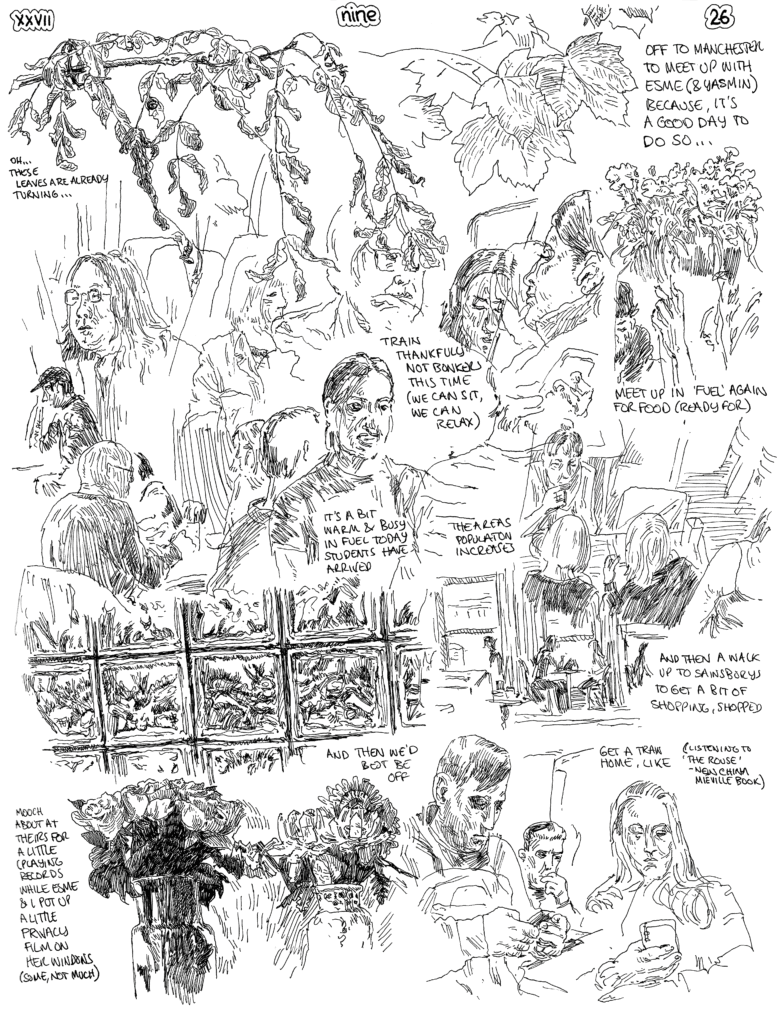 XXVII
nine
26
OFF TO MANCHESTER
TO MEET UP WITH
ESME (& YASMIN)
BECAUSE, IT'S
A GOOD DAY TO
DO SO...
OH...
THESE
LEAVES ARE ALREADY
TURNING...
TRAIN
THANKFULLY
NOT BONKERS
THIS TIME
(WE CAN SIT,
WE CAN
RELAX)
MEET UP IN 'FUEL' AGAIN
FOR FOOD (READY FOR)
IT'S A BIT
WARM & BUSY
IN FUEL TODAY
STUDENTS HAVE
ARRIVED
THE AREAS
POPULATON
INCREASES
AND THEN A WALK
UP TO SAINSBURYS
TO GET A BIT OF
SHOPPING, SHOPPED
AND THEN WE'D
BEST BE
OFF
GET A TRAIN
HOME, LIKE
(LISTENING TO
'THE ROUSE'
-NEW CHINA
MIEVILLE BOOK)
MOOCH
ABOUT AT
THEIRS FOR
A LITTLE
(PLAYING
RECORDS
WHILE ESME
& I PUT UP
A LITTLE
PRIVACY
FILM ON
HER WINDOWS
(SOME, NOT MUCH)